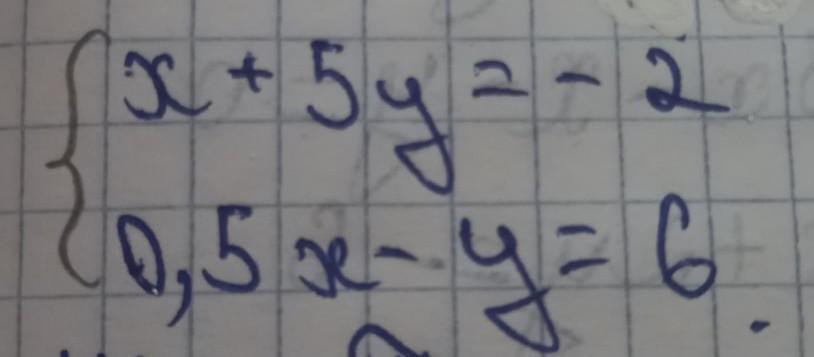 x + 5y = - 2
0,5x - y = 6.